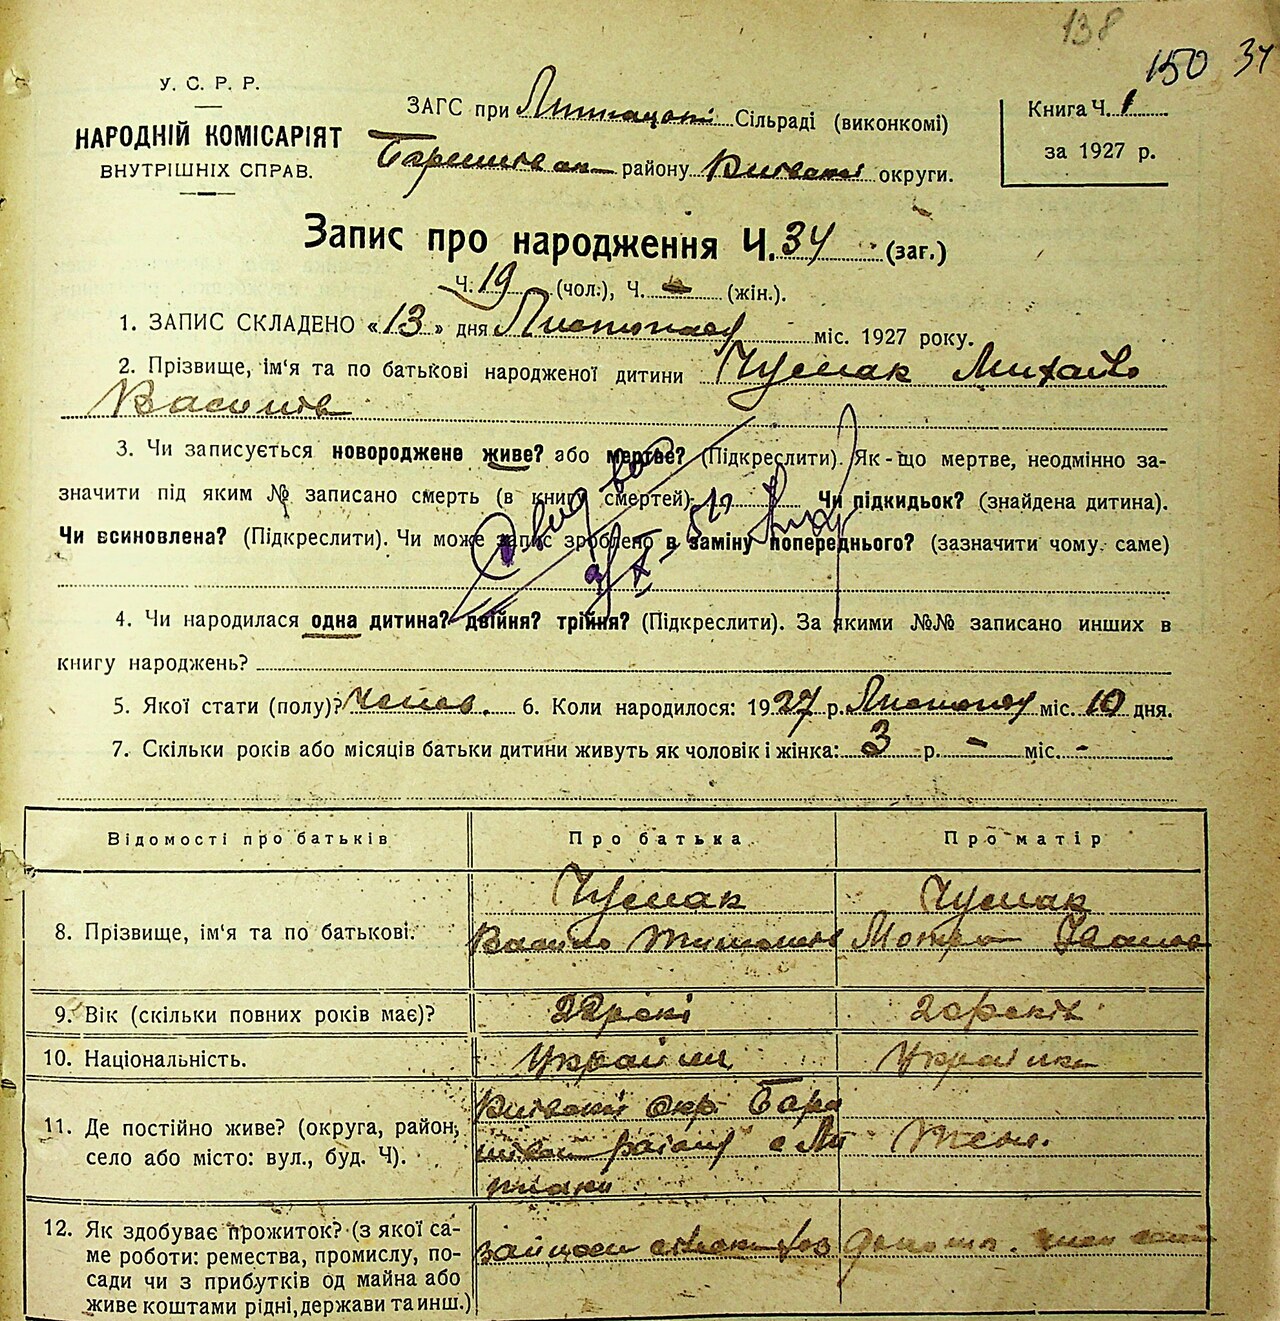 138
150 34
У. С. Р. Р.
НАРОДНІЙ КОМІСАРІЯТ
ВНУТРІШНІХ СПРАВ.
ЗАГС при Сільраді (виконкомі)
району Київської округи.
Книга Ч. 1
за 1927 р.
Запис про народження Ч. 34 (заг.)
Ч. 19 (чол.), Ч. - (жін.).
1. ЗАПИС СКЛАДЕНО «13» дня Листопаду міс. 1927 року.
2. Прізвище, ім'я та по батькові народженої дитини Чумак Михайло
Васильов
3. Чи записується новороджене живе? або мертве? (Підкреслити). Як-що мертве, неодмінно за-
значити під яким № записано смерть (в книгу смертей) Чи підкидьок? (знайдена дитина).
Чи всиновлена? (Підкреслити). Чи може запис зроблено в заміну попереднього? (зазначити чому саме)
4. Чи народилася одна дитина? двійня? трійня? (Підкреслити). За якими №№ записано инших в
книгу народжень?
5. Якої стати (полу)? 6. Коли народилося: 1927 р. Листопаду міс. 10 дня.
7. Скільки років або місяців батьки дитини живуть як чоловік і жінка: 3 р. - міс. -
Відомості про батьків Про батька Про матір
8. Прізвище, ім'я та по батькові. Чумак Чумак
Василь Мотря Іванов
9. Вік (скільки повних років має)? 22 рокі 20 років
10. Національність. Українка
11. Де постійно живе? (округа, район, село або місто: вул., буд. Ч). Київської окр. Бари
району с.
12. Як здобуває прожиток? (з якої са-
ме роботи: ремества, промислу, по-
сади чи з прибутків од майна або
живе коштами рідні, держави та инш.)